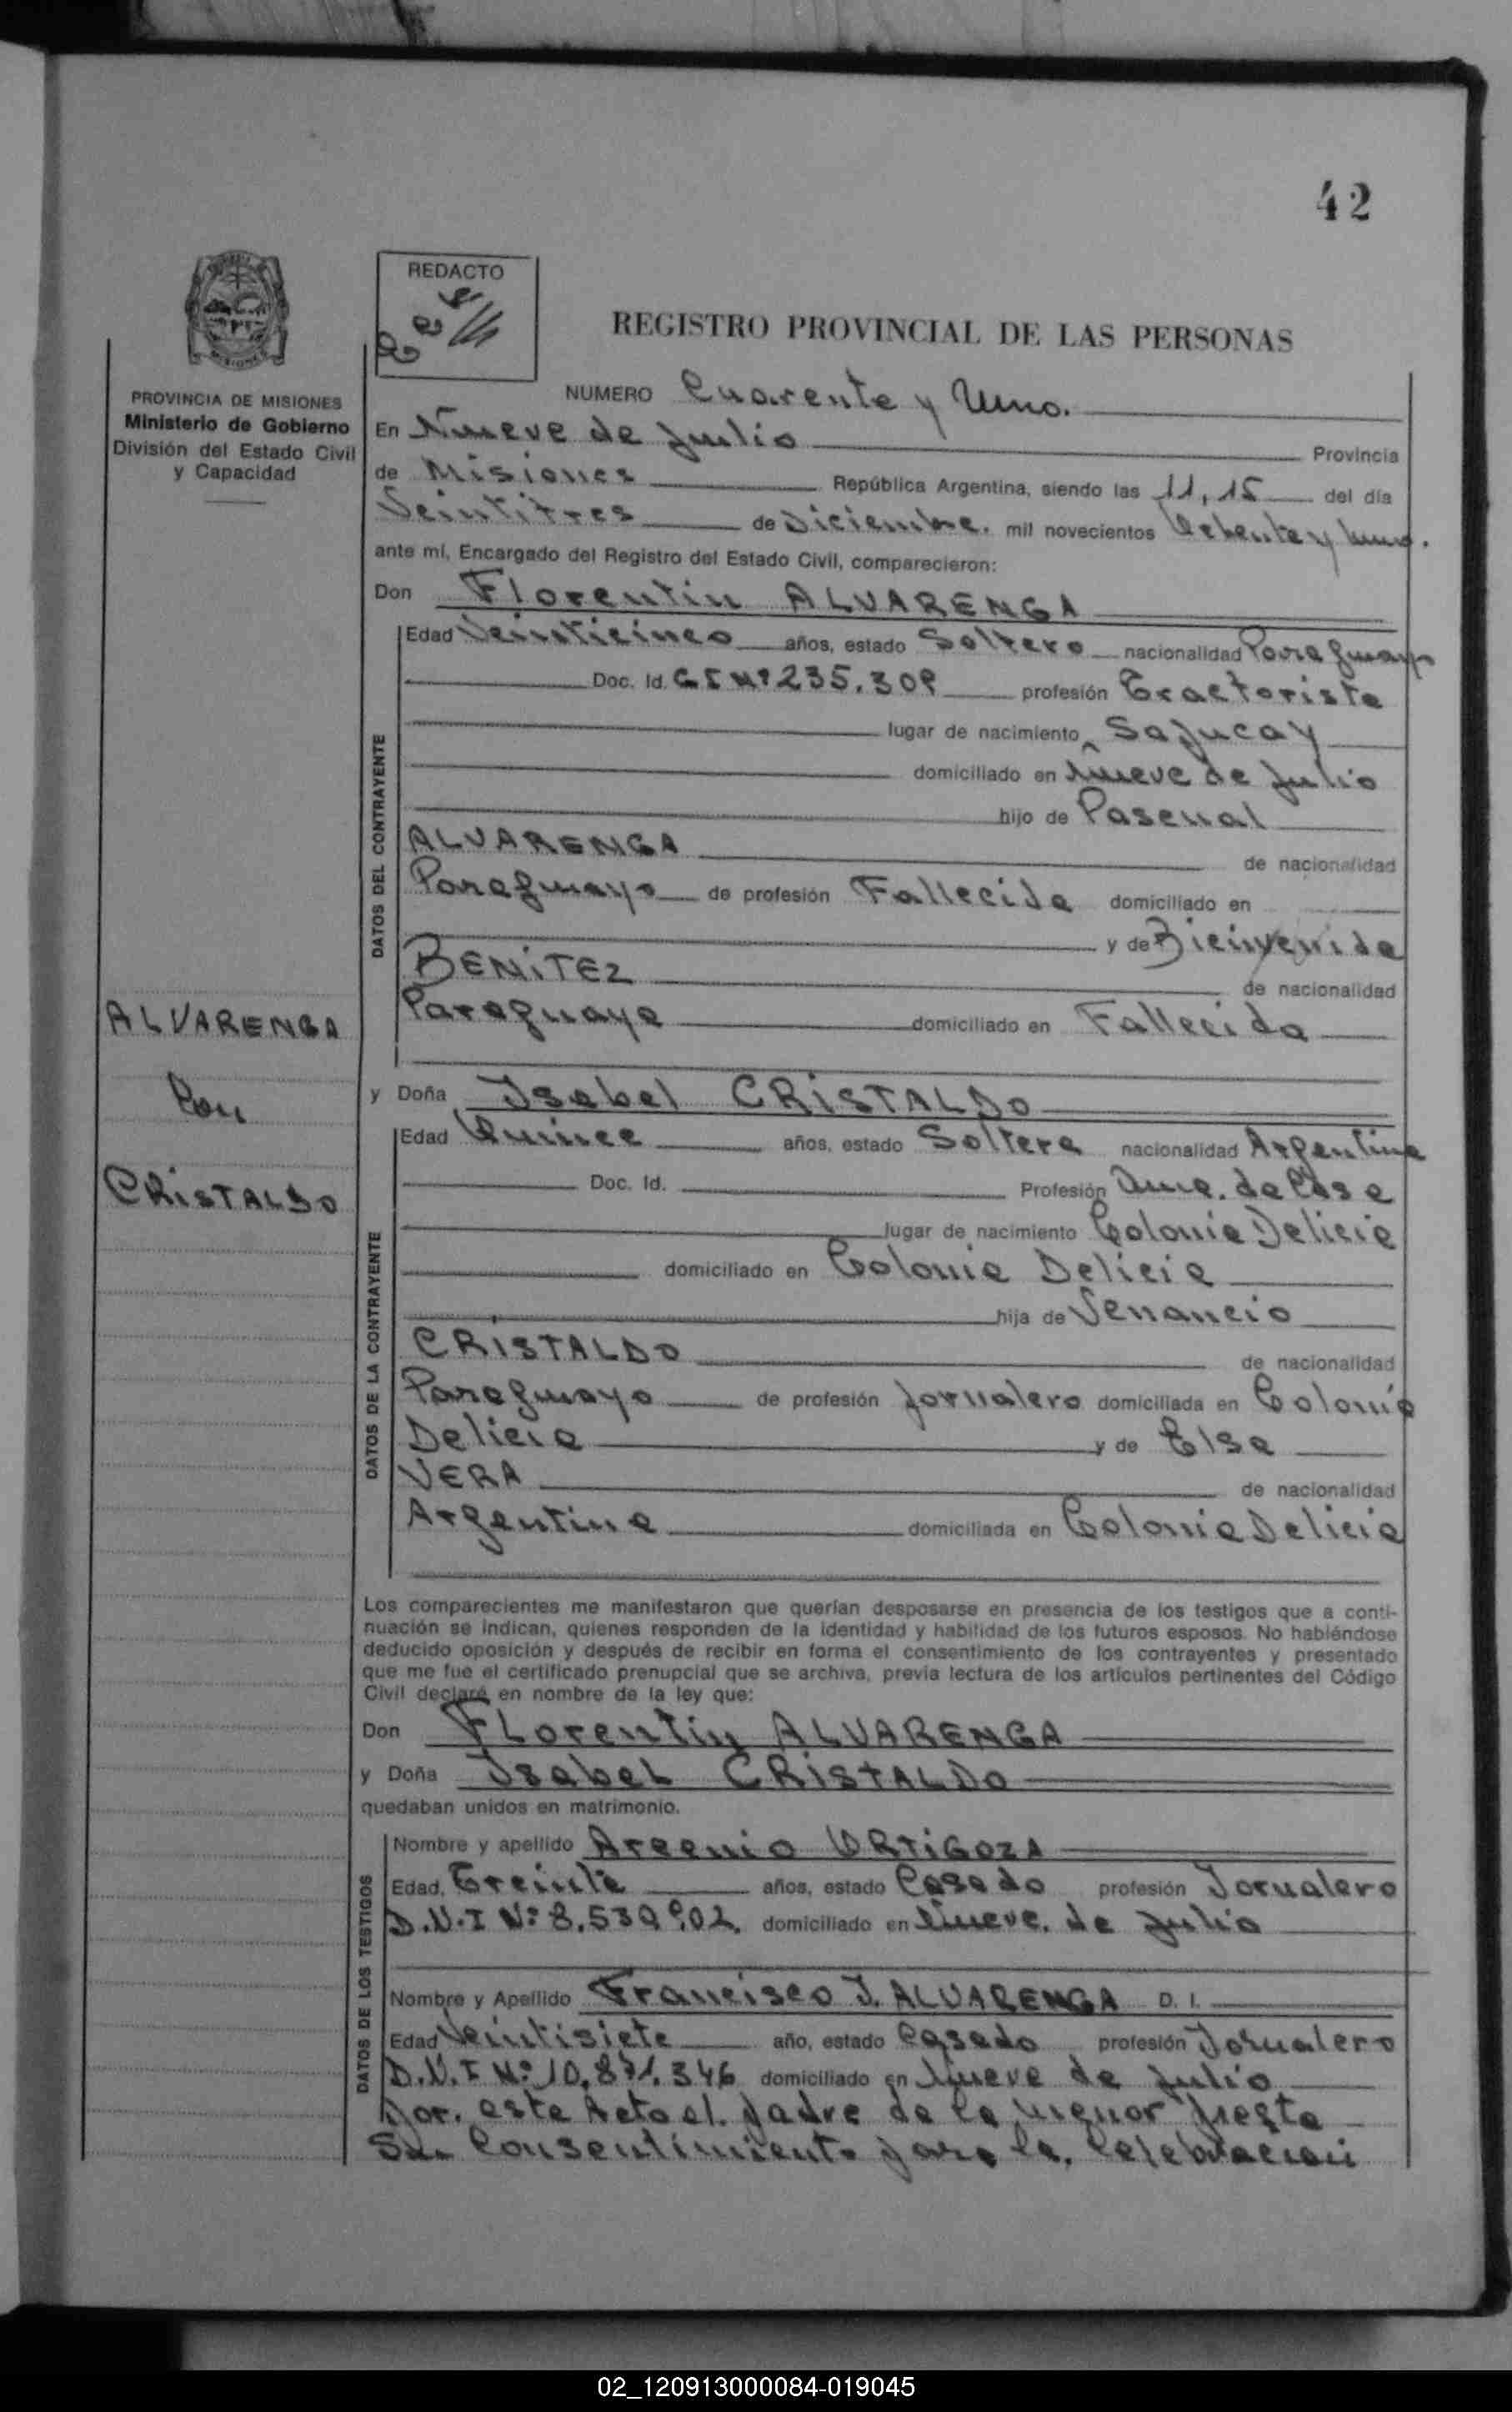 42
REDACTO
REGISTRO PROVINCIAL DE LAS PERSONAS
PROVINCIA DE MISIONES
Ministerio de Gobierno
División del Estado Civil
y Capacidad
NUMERO Cuarenta y Uno.
En Nueve de Julio Provincia
de Misiones República Argentina, siendo las 11,15 del día
Veintitres de Diciembre. mil novecientos Ochenta y uno.
ante mí, Encargado del Registro del Estado Civil, comparecieron:
Don Florentin ALVARENGA
DATOS DEL CONTRAYENTE
Edad Veinticinco años, estado Soltero nacionalidad Paraguayo
Doc. Id. C I Nº 235.309 profesión Tractorista
lugar de nacimiento Sajucay
domiciliado en Nueve de Julio
hijo de Pascual
ALVARENGA de nacionalidad
Paraguayo de profesión Fallecida domiciliado en
y de Bienvenida
BENITEZ de nacionalidad
Paraguaya domiciliado en Fallecida
ALVARENGA
Con
CRISTALDO
y Doña Isabel CRISTALDO
DATOS DE LA CONTRAYENTE
Edad Quince años, estado Soltera nacionalidad Argentina
Doc. Id. Profesión Ama. de Casa
lugar de nacimiento Colonia Delicia
domiciliado en Colonia Delicia
hija de Venancio
CRISTALDO de nacionalidad
Paraguayo de profesión Jornalero domiciliada en Colonia
Delicia y de Elsa
VERA de nacionalidad
Argentina domiciliada en Colonia Delicia
Los comparecientes me manifestaron que querían desposarse en presencia de los testigos que a conti-
nuación se indican, quienes responden de la identidad y habilidad de los futuros esposos. No habiéndose
deducido oposición y después de recibir en forma el consentimiento de los contrayentes y presentado
que me fue el certificado prenupcial que se archiva, previa lectura de los artículos pertinentes del Código
Civil declaré en nombre de la ley que:
Don FLorentin ALVARENGA
y Doña IsabeL CRISTALDO
quedaban unidos en matrimonio.
DATOS DE LOS TESTIGOS
Nombre y apellido ORTIGOZA
Edad. Treinta años, estado Casado profesión Jornalero
D.N.I Nº 8.539.902. domiciliado en Nueve. de Julio
Nombre y Apellido Francisco J. ALVARENGA D. I.
Edad Veintisiete año, estado Casado profesión Jornalero
D.N.I Nº 10.871.346 domiciliado en Nueve de Julio
Por. este Acto el. padre de la menor presta
Su. Consentimiento para la. Celebracion
02_120913000084-019045